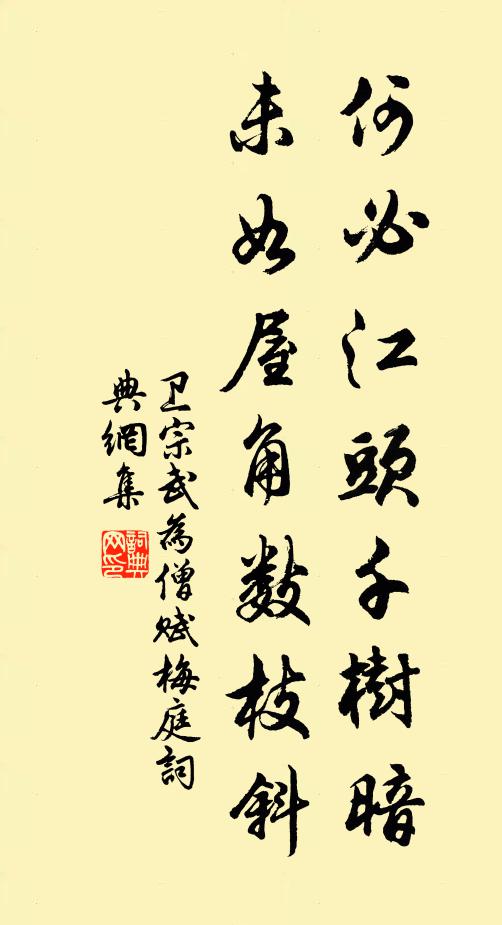 何必江頭千樹暗
未如屋角数枝斜
卫宗武為僧赋梅庭詞
典網集
詞典
网印